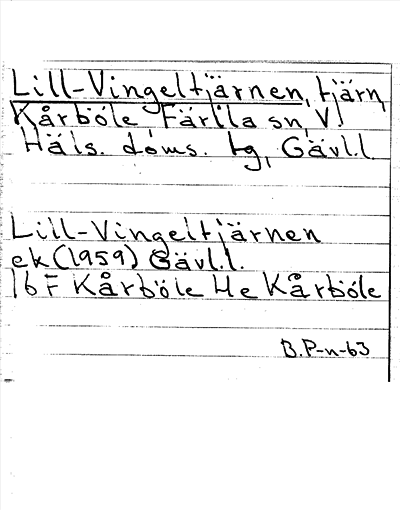 Lill-Vingeltjärnen, tjärn
Kårböle Färila sn, V.
Häls. doms. tg, Gävl.l
Lill-Vingeltjärnen
ek(1959) Gävl.l.
16 F Kårböle He Kårböle
B.P-n-63